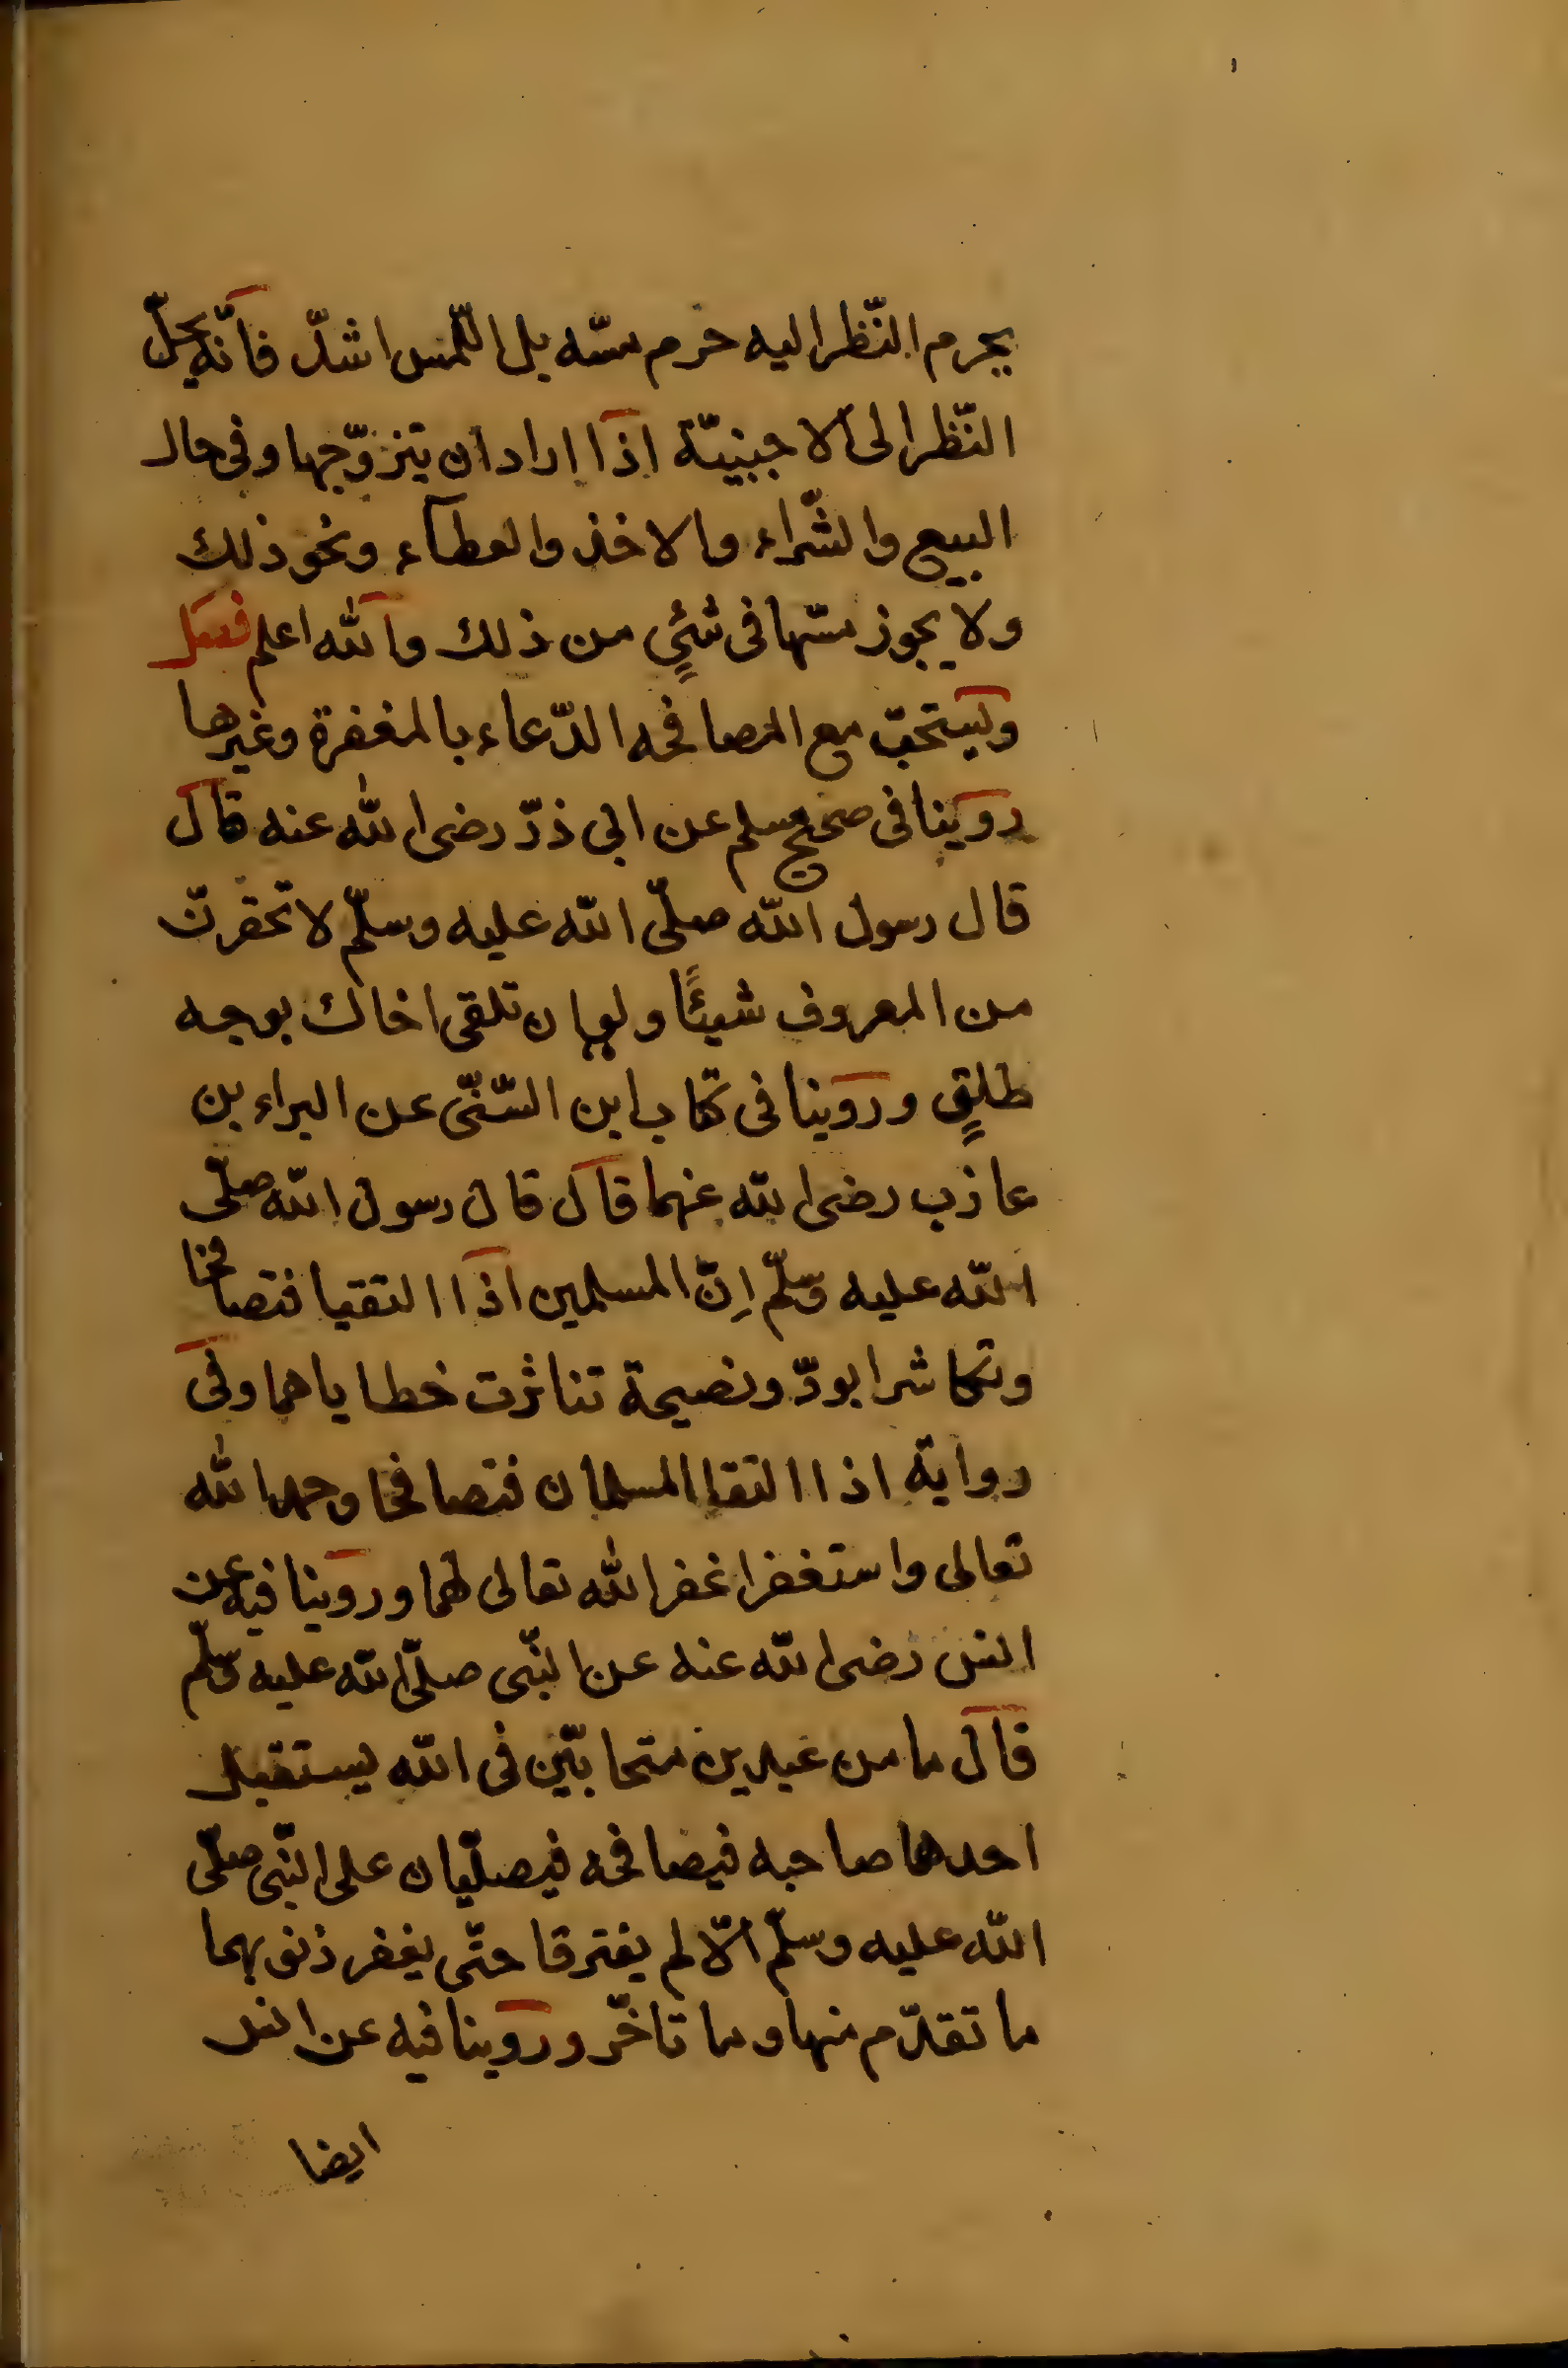 يحرم النّظر اليه حرم مسّه بل اللّمس اشدّ فانّه يحلّ
النّظر الى الاجنبيّة اذا اراد ان يتزوّجها وفى حال
البيع والشّراء والاخذ والعطاء ونحو ذلك
ولا يجوز مسّها فى شئٍ من ذلك والله اعلم فصل
ويستحبّ مع المصافحه الدّعاء بالمغفرة وغيرها
روينا فى صحيح مسلم عن ابى ذرّ رضى الله عنه قال
قال رسول الله صلّى الله عليه وسلّم لا تحقرنّ
من المعروف شيئًا ولو ان تلقى اخاك بوجه
طلقٍ وروينا فى كتاب ابن السّنّى عن البراء بن
عازب رضى الله عنهما قال قال رسول الله صلّى
الله عليه وسلّم اِنّ المسلمين اذا التقيا فتصافحا
وتكاشرا بودّ ونصيحة تناثرت خطاياهما وفى
رواية اذا التقا المسلمان فتصافحا وحمدا الله
تعالى واستغفرا غفر الله تعالى لهما وروينا فيه عن
انس رضى الله عنه عن النّبى صلّى الله عليه وسلّم
قال ما من عبدين متحابّين فى الله يستقبل
احدهما صاحبه فيصافحه فيصلّيان على النّبى صلّى
الله عليه وسلّم الّا لم يفترقا حتّى يغفر ذنوبهما
ما تقدّم منها وما تاخّر وروينا فيه عن انس
ايضا